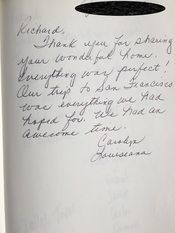 Richard,
Thank you for sharing
your wonderful home.
Everything was perfect!
Our trip to San Francisco
was everything we had
hoped for. We had an
awesome time.
Carolyn
Louisiana